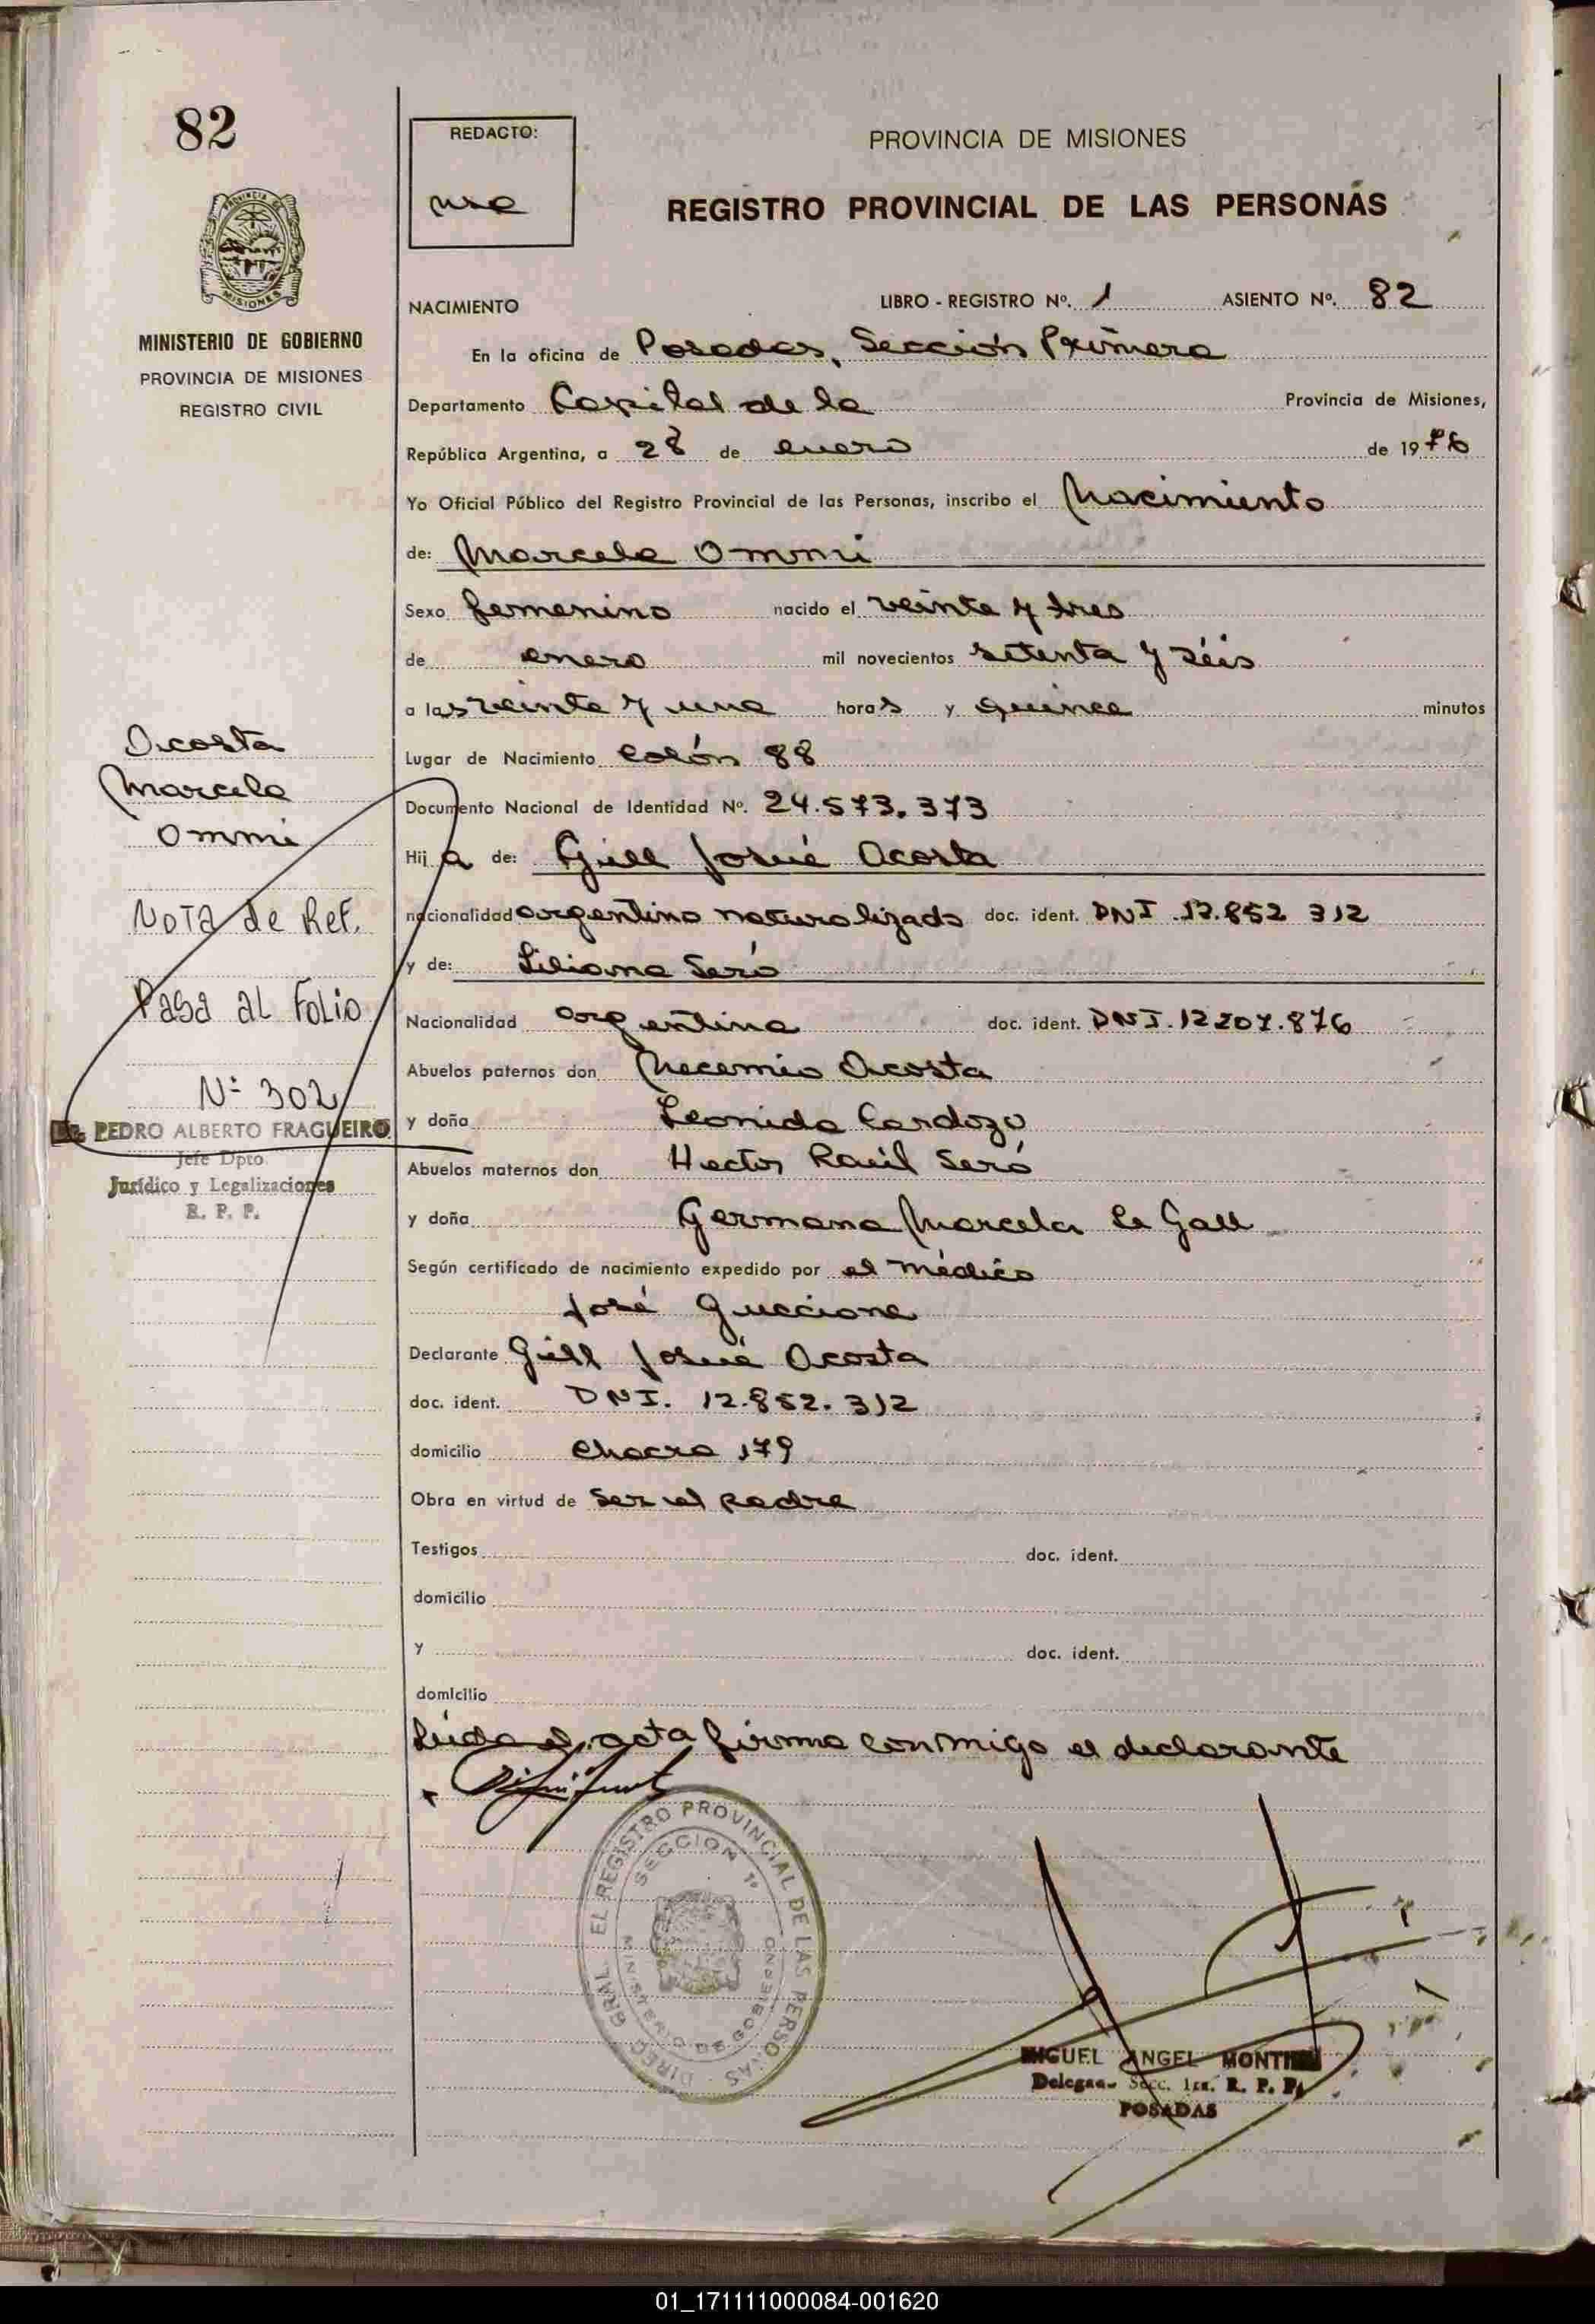 82
REDACTO:
PROVINCIA DE MISIONES
REGISTRO PROVINCIAL DE LAS PERSONAS
PROVINCIA DE
MISIONES
MINISTERIO DE GOBIERNO
PROVINCIA DE MISIONES
REGISTRO CIVIL
NACIMIENTO LIBRO - REGISTRO Nº. 1 ASIENTO Nº. 82
En la oficina de Posadas, Sección Primera
Departamento Capital de la Provincia de Misiones,
República Argentina, a 28 de enero de 1976
Yo Oficial Público del Registro Provincial de las Personas, inscribo el Nacimiento
de: Marcela Ommi
Sexo femenino nacido el veinte y tres
de enero mil novecientos setenta y séis
a las veinte y una horas y quince minutos
Lugar de Nacimiento Colón 88
Documento Nacional de Identidad Nº. 24.573.373
Hija de: Gill Josué Acosta
nacionalidad argentino naturalizado doc. ident. DNI 12.852 312
y de: Liliana Seró
Nacionalidad argentina doc. ident. DNI. 12 207.876
Abuelos paternos don Necemio Acosta
y doña Leonida Cardozo
Abuelos maternos don Hector Raúl Seró
y doña Germana Marcela Le Gall
Según certificado de nacimiento expedido por el médico
José Guccione
Declarante Gill Josué Acosta
doc. ident. DNI. 12.852.312
domicilio Chacra 179
Obra en virtud de ser el padre
Testigos doc. ident.
domicilio
y doc. ident.
domicilio
Leída el acta firma conmigo el declarante
Acosta
Marcela
Ommi
Nota de Ref.
Pasa al Folio
Nº 302
Dr. PEDRO ALBERTO FRAGUEIRO
Jefe Dpto.
Jurídico y Legalizaciones
R. P. P.
DIREC. GRAL. EL REGISTRO PROVINCIAL DE LAS PERSONAS
SECCION 1ª
MINISTERIO DE GOBIERNO
MIGUEL ANGEL
Secc. 1ra. R. P. P.
POSADAS
01_171111000084-001620